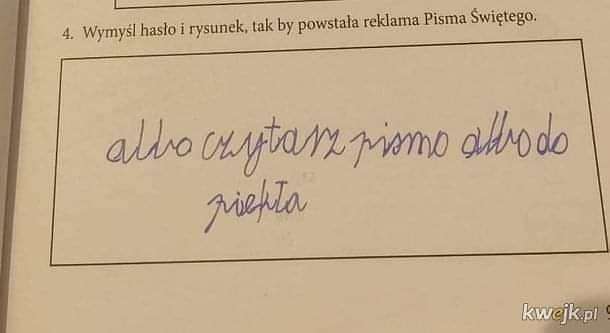 4. Wymyśl hasło i rysunek, tak by powstała reklama Pisma Świętego.
albo czytasz pismo albo do
piekła
kwejk.pl